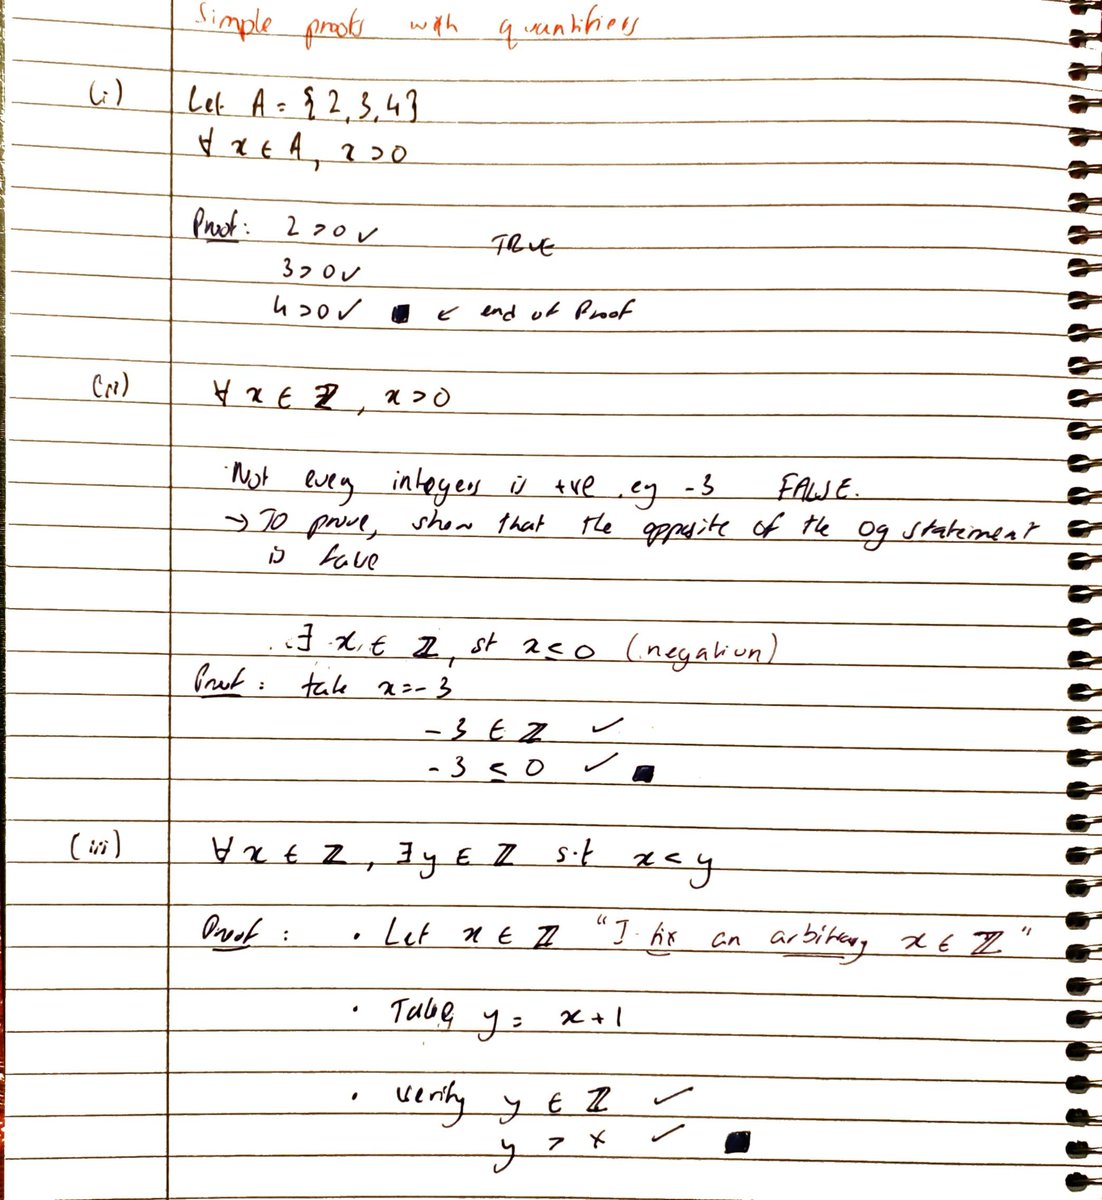 Simple proofs with quantifiers
(i) Let A = {2,3,4}
∀ x ∈ A, x > 0
Proof: 2 > 0 ✓ TRUE
3 > 0 ✓
4 > 0 ✓ ■ ← end of Proof
(ii) ∀ x ∈ ℤ, x > 0
Not every integers is +ve. eg -3 FALSE.
→ To prove, show that the opposite of the og statement
is
∃ x ∈ ℤ, st x ≤ 0 (negation)
Proof: take x = -3
-3 ∈ ℤ ✓
-3 ≤ 0 ✓ ■
(iii) ∀ x ∈ ℤ, ∃ y ∈ ℤ s.t x < y
Proof: • Let x ∈ ℤ "I fix an arbitrary x ∈ ℤ"
• Take y = x + 1
• verify y ∈ ℤ ✓
y > x ✓ ■